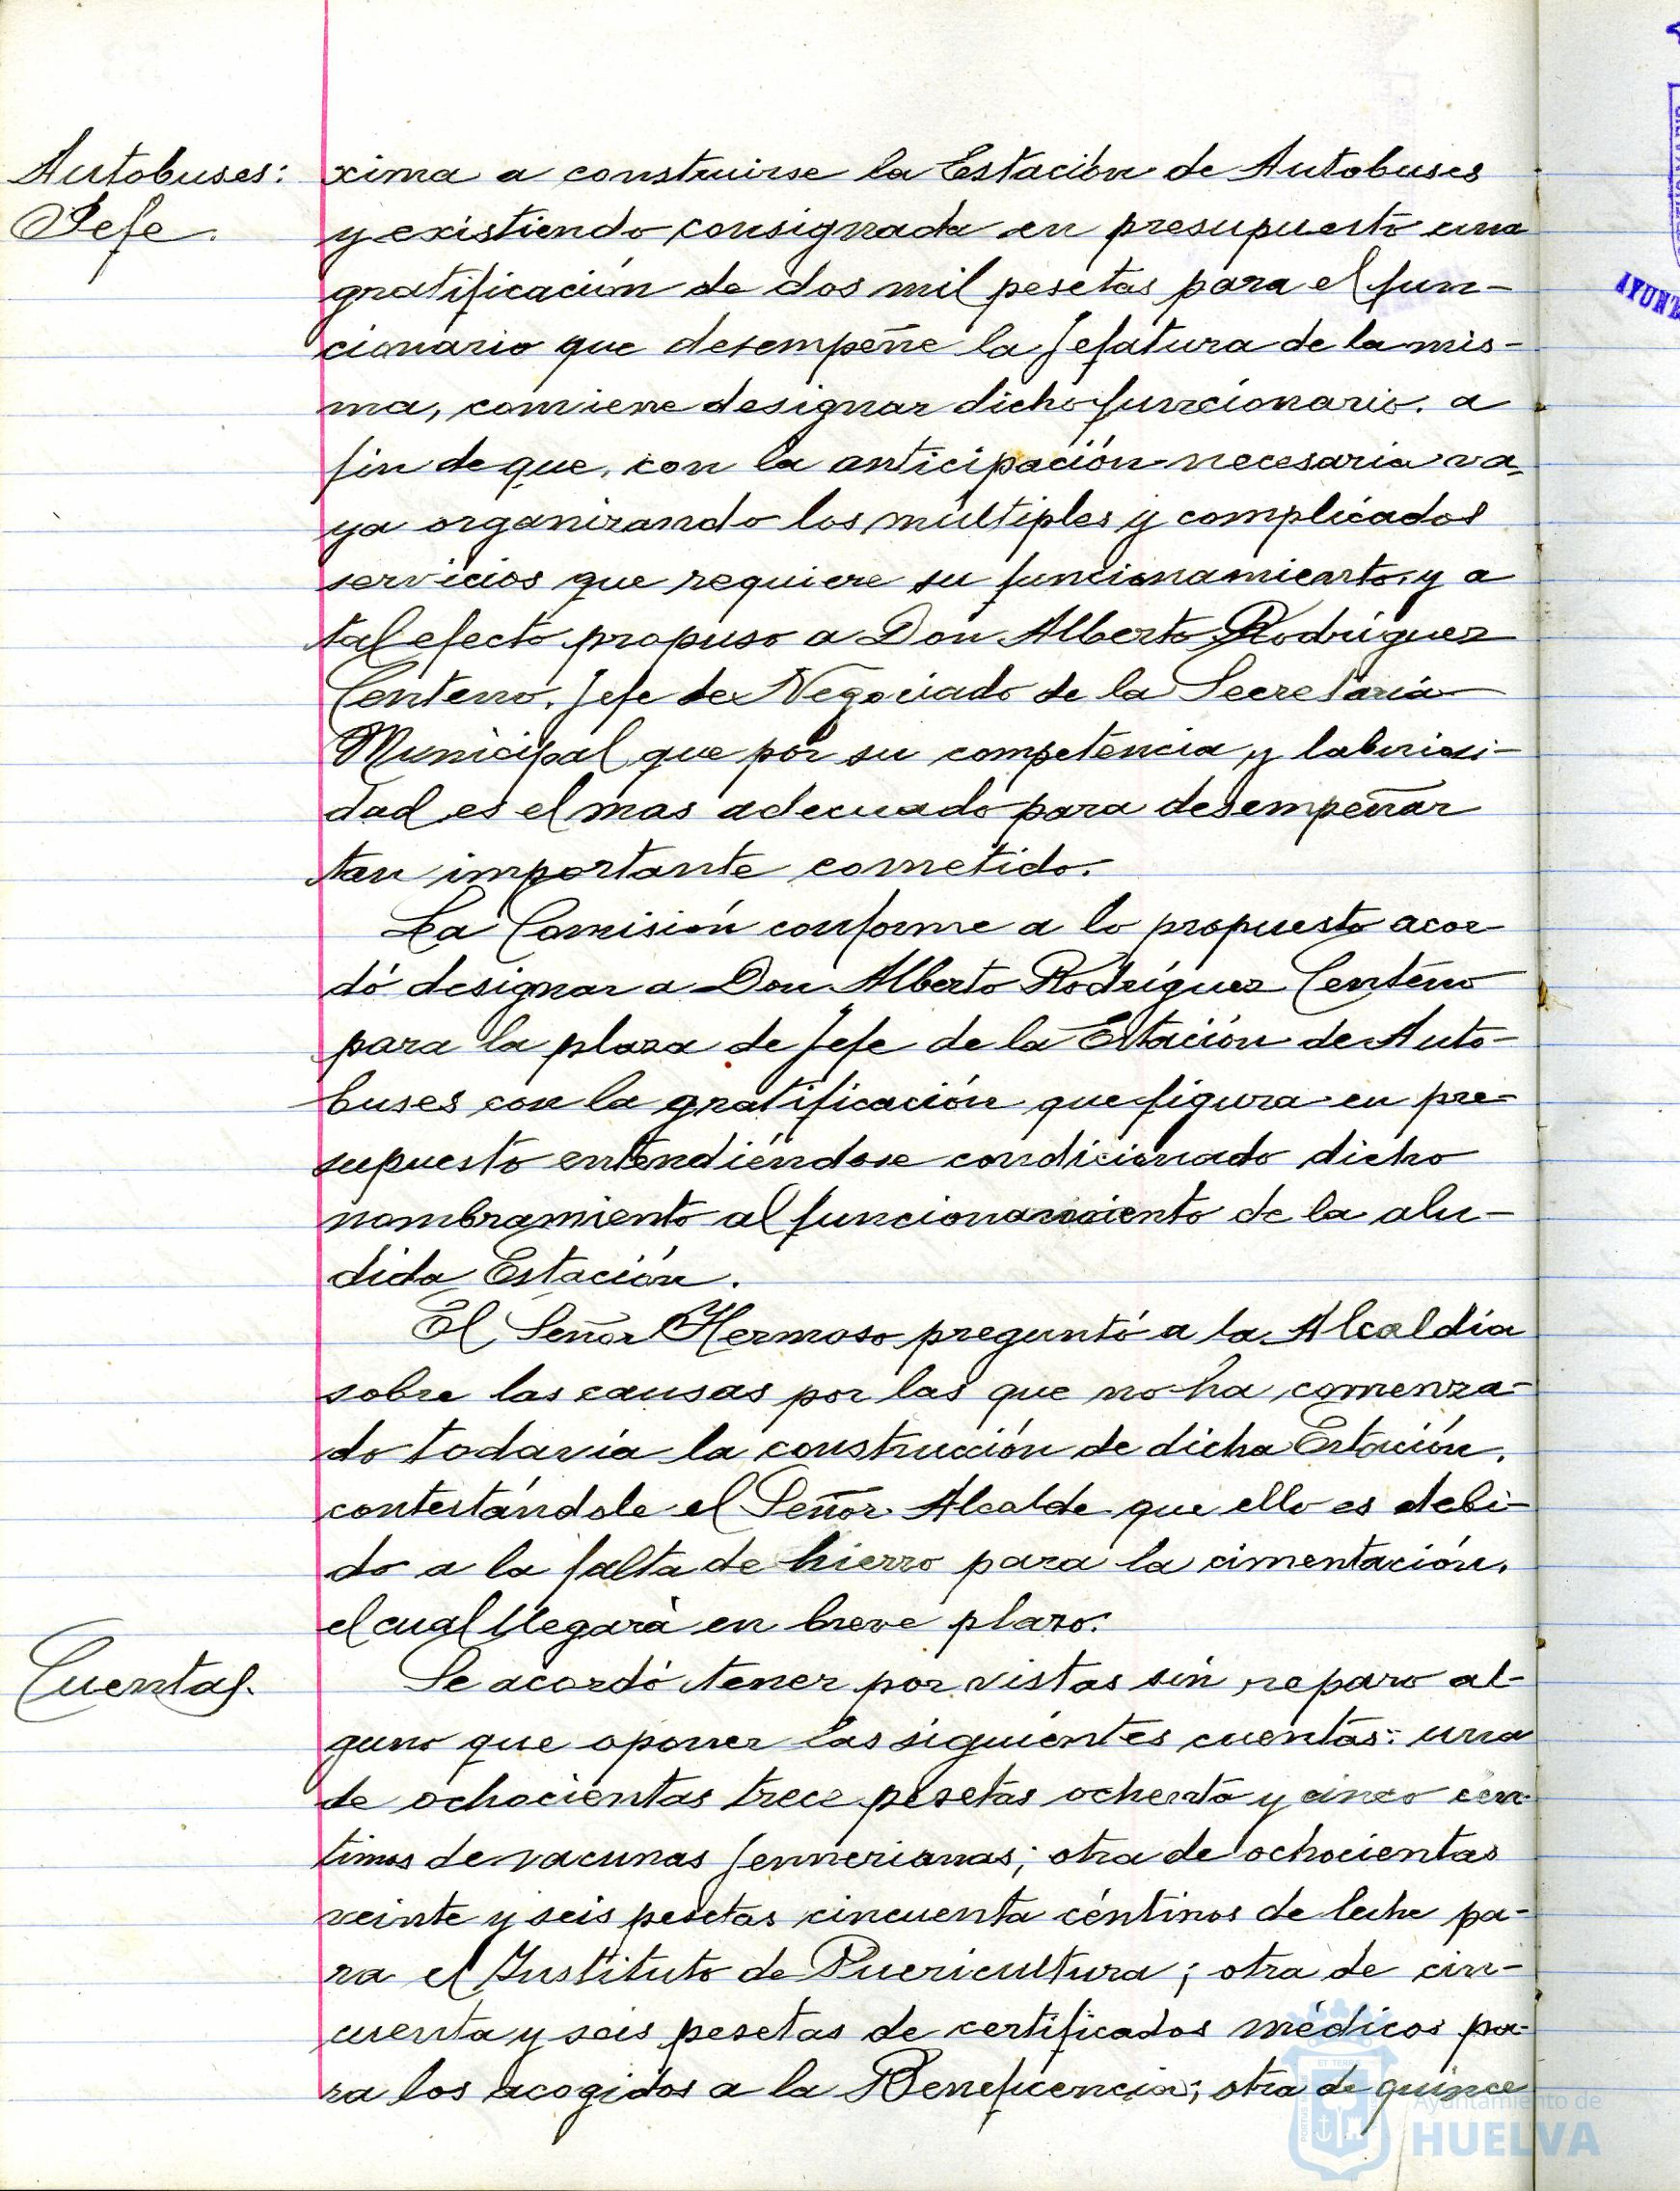 Autobuses:
Jefe.
xima a construirse la Estación de Autobuses
y existiendo consignada en presupuesto una
gratificación de dos mil pesetas para el fun-
cionario que desempeñe la Jefatura de la mis-
ma, conviene designar dicho funcionario, a
fin de que, con la anticipación necesaria va-
ya organizando los múltiples y complicados
servicios que requiere su funcionamiento, y a
tal efecto propuso a Don Alberto Rodríguez
Centeno, Jefe de Negociado de la Secretaría
Municipal que por su competencia y laboriosi-
dad es el mas adecuado para desempeñar
tan importante cometido.
La Comisión conforme a lo propuesto acor-
dó designar a Don Alberto Rodríguez Centeno
para la plaza de Jefe de la Estación de Auto-
buses con la gratificación que figura en pre-
supuesto entendiéndose condicionado dicho
nombramiento al funcionamiento de la alu-
dida Estación.
El Señor Hermoso preguntó a la Alcaldía
sobre las causas por las que no ha comenza-
do todavía la construcción de dicha Estación,
contestándole el Señor Alcalde que ello es debi-
do a la falta de hierro para la cimentación,
el cual llegará en breve plazo.
Cuentas.
Se acordó tener por vistas sin reparo al-
guno que oponer las siguientes cuentas: una
de ochocientas trece pesetas ochenta y cinco cen-
timos de vacunas Jennerianas; otra de ochocientas
veinte y seis pesetas cincuenta céntimos de leche pa-
ra el Instituto de Puericultura; otra de cin-
cuenta y seis pesetas de certificados médicos pa-
ra los acogidos a la Beneficencia; otra de quince
Ayuntamiento de
HUELVA